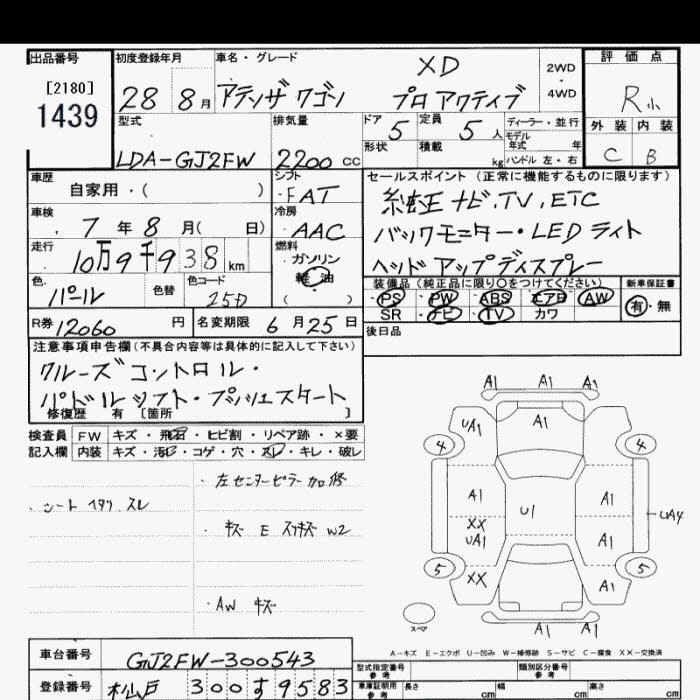 出品番号 初度登録年月 車名・グレード 評価点
[2180] 28 8月 アテンザ ワゴン XD プロアクティブ 2WD・4WD R小
1439
型式 排気量 ドア 5 定員 5人 ディーラー・並行 外装 内装
LDA-GJ2FW 2200cc 形状 積載 kg モデル年式 年 ハンドル 左・右 C B
車歴 自家用・( ) シフト ・FAT セールスポイント(正常に機能するものに限ります)
車検 7年8月( 日) 冷房 AAC 純正ナビ,TV,ETC
バックモニター・LEDライト
走行 10万9千938km 燃料 ガソリン 軽油 ( ) ヘッドアップディスプレー
色 パール 色替 色コード 25D 装備品(純正品に限り○をつけてください) 新車保証書
・PS ・PW ・ABS ・エアB ・AW 有・無
SR ・ナビ ・TV カワ
R券 12060円 名変期限 6月25日 後日品
注意事項申告欄(不具合内容等は具体的に記入して下さい)
クルーズコントロール・
パドルシフト・プッシュスタート
修復歴 有 [箇所 ]
検査員 FW キズ・飛石・ヒビ割・リペア跡・×要
記入欄 内装 キズ・汚レ・コゲ・穴・スレ・キレ・破レ
・左センターピラー加修
・シート イタリ スレ
・キズ E スリキズ W2
・AW キズ
A1 A1 A1
UA1 A1
4 4
A1 A1
U1 UA4
XX
UA1 A1
5 5
XX A1
スペア
A1 A1
A-キズ E-エクボ U-凹み W-補修跡 S-サビ C-腐食 XX-交換済
車台番号 GJ2FW-300543
型式指定番号 参考 類別区分番号 参考
登録番号 松戸 300す9583
車庫証明用 参考 長さ cm 幅 cm 高さ cm